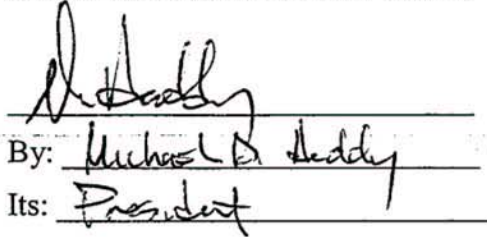 By: Michael D. Heddy
Its: President